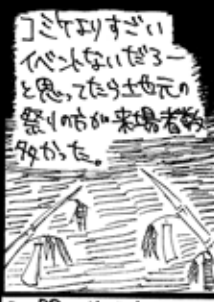 コミケよりすごい
イベントないだろー
と思ってたら土地元の
祭りの方が来場者数
多かった。